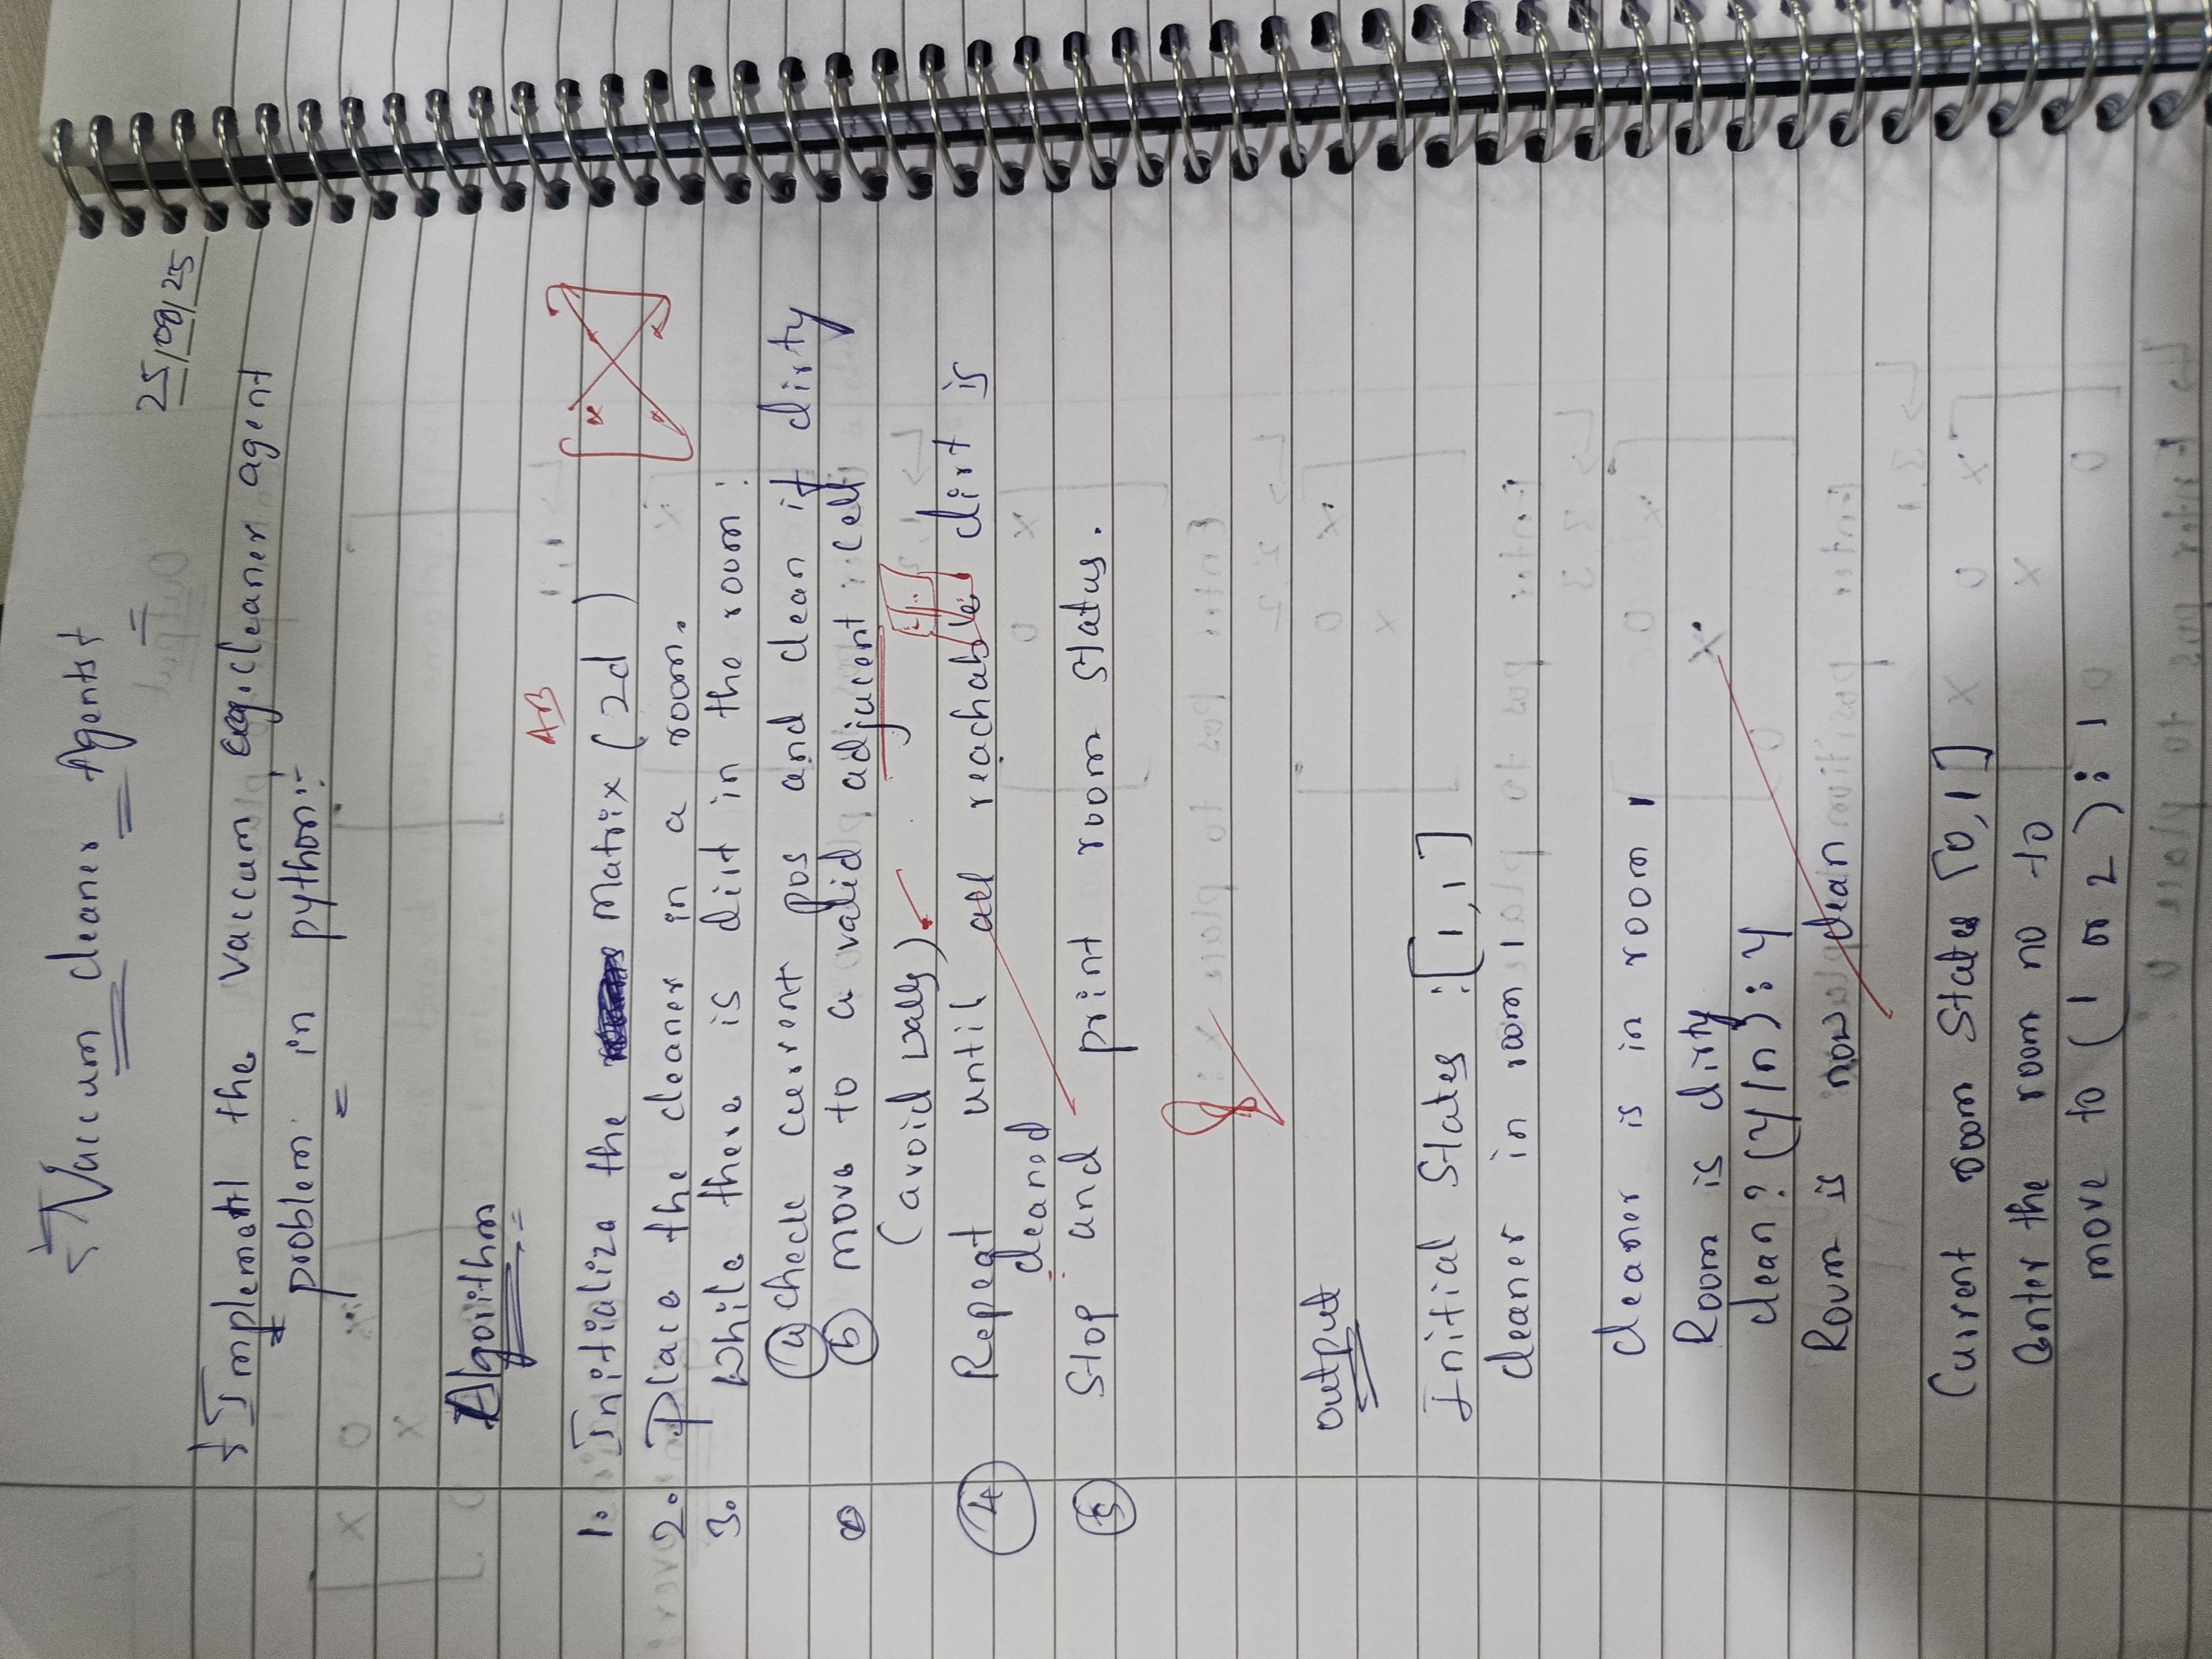 Vaccum cleaner Agentst
25/08/25
Implemetl the vaccum cleaner agent
problem in python:-
Algorithm
AB
1. Initializa the Matrix (2d)
2. Place the cleaner in a room.
3. While there is dirt in the room:
(a) check current pos and clean if dirty
(b) move to a valid adjucent cell
(avoid walls)
(4) Repeat until all reachable dirt is
cleaned
(5) Stop and print room status.
8
output
Initial States : [1,1]
cleaner in room 1
cleaner is in room 1
Room is dirty
clean? (y/n): y
Room is now clean
Current room States [0,1]
Enter the room no to
move to (1 or 2): 1